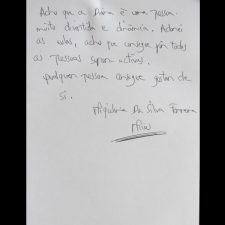 Acho que a Diana é uma pessoa
muito divertida e dinâmica. Adorei
as aulas, acho que consegue pôr todas
as pessoas super activas.
Qualquer pessoa consegue gostar de
si.
Da Silva Ferreira